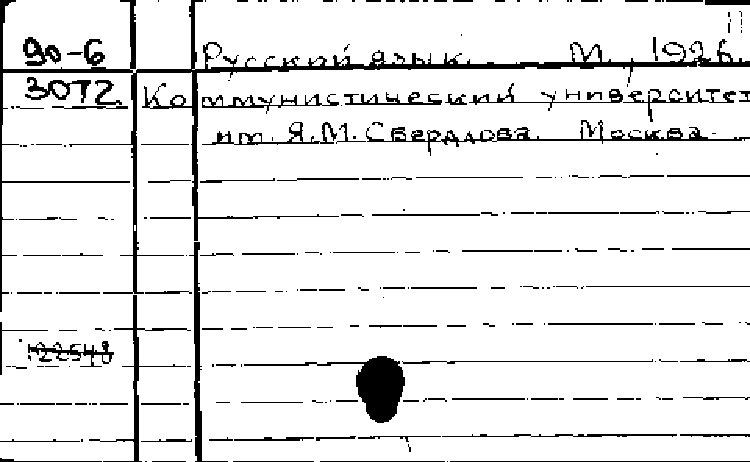 90-6 Русский язык. М., 1926.
3072. Коммунистический университет
им. Я.М. Свердлова. Москва.
122548